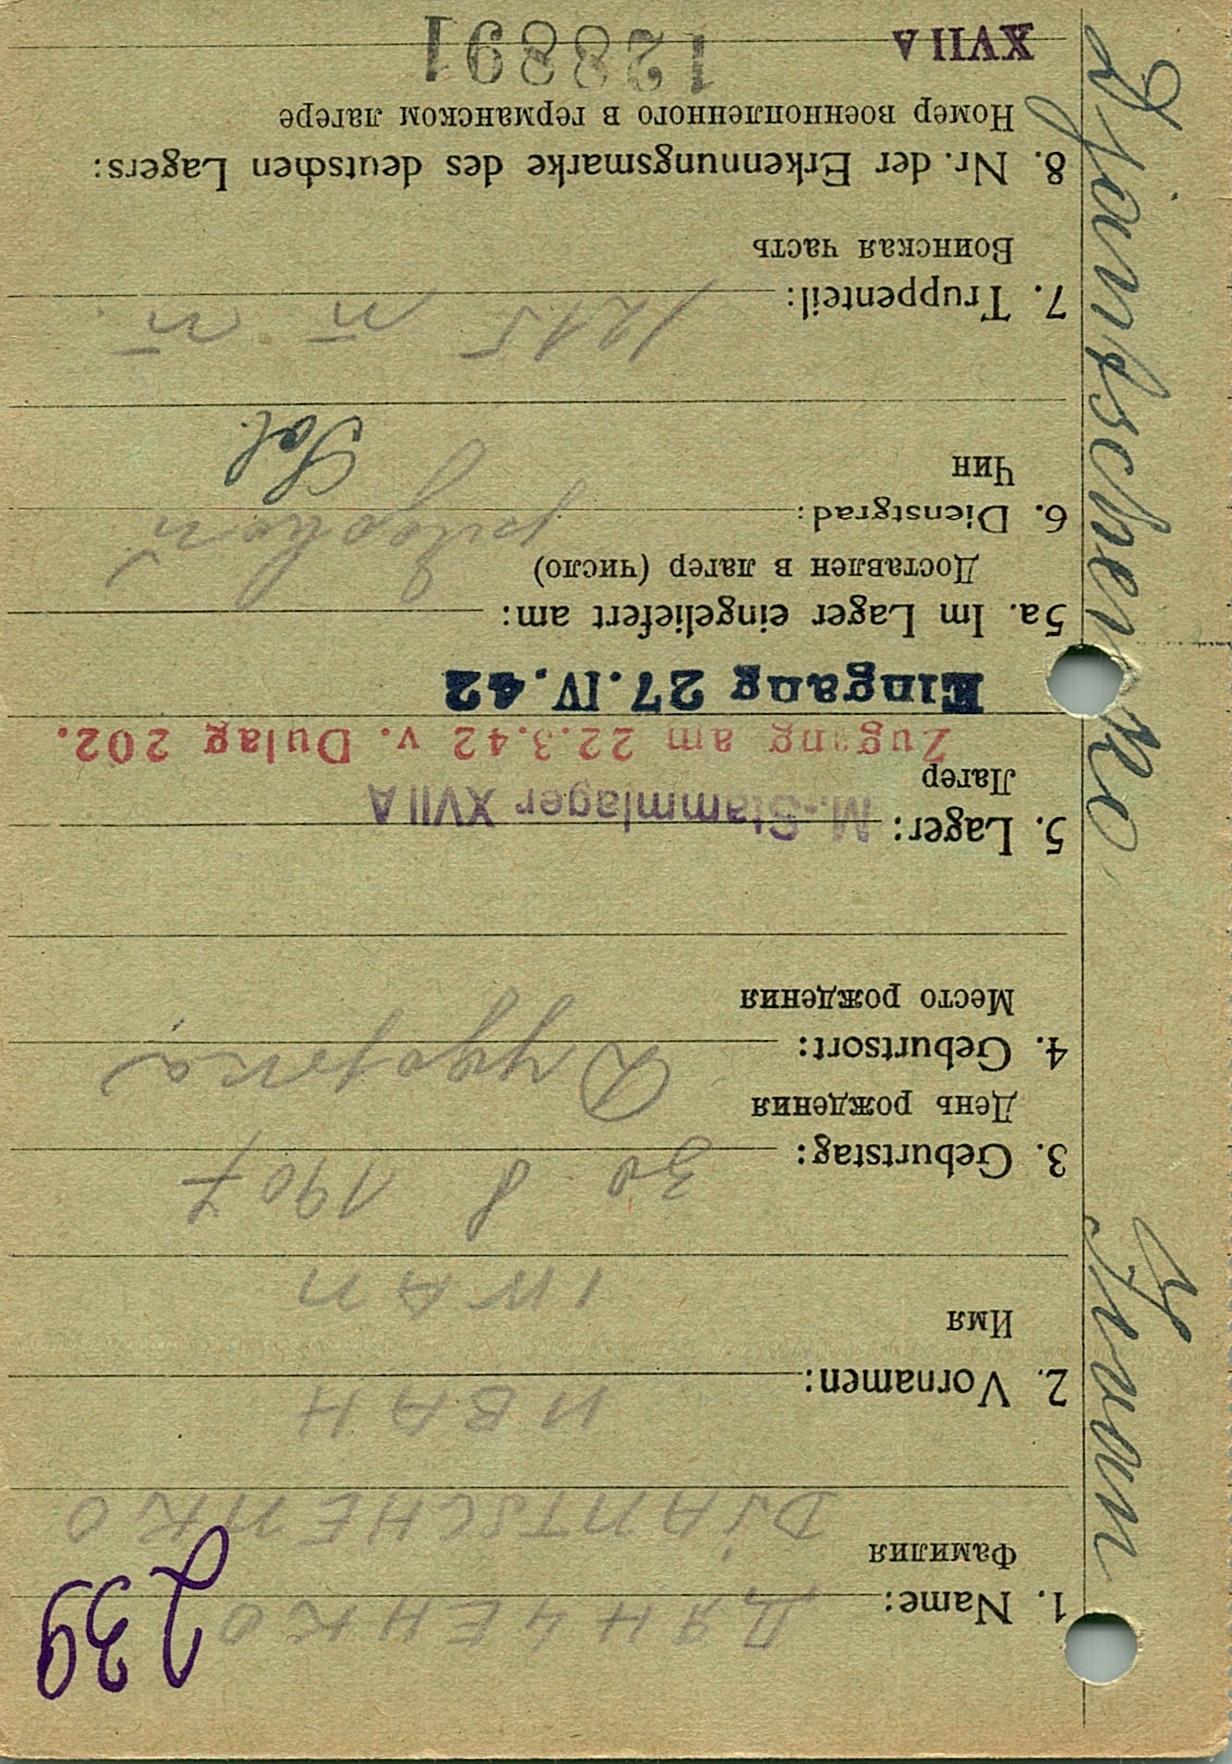 239
1. Name: ДЯНЧЕНКО
Фамилия
DJANTSCHENKO
2. Vornamen: ИВАН
Имя
IWAN
3. Geburtstag: 30 8 1907
День рождения
4. Geburtsort:
Место рождения
5. Lager: M.-Stammlager XVII A
Лагер
Zugang am 22.3.42 v. Dulag 202.
Eingang 27.IV.42
5a. Im Lager eingeliefert am:
Доставлен в лагер (число)
6. Dienstgrad: рядовой
Чин
Sol.
7. Truppenteil: 1215
Воинская часть
8. Nr. der Erkennungsmarke des deutschen Lagers:
Номер военнопленного в германском лагере
XVII A 128891
Djantschenko Iwan